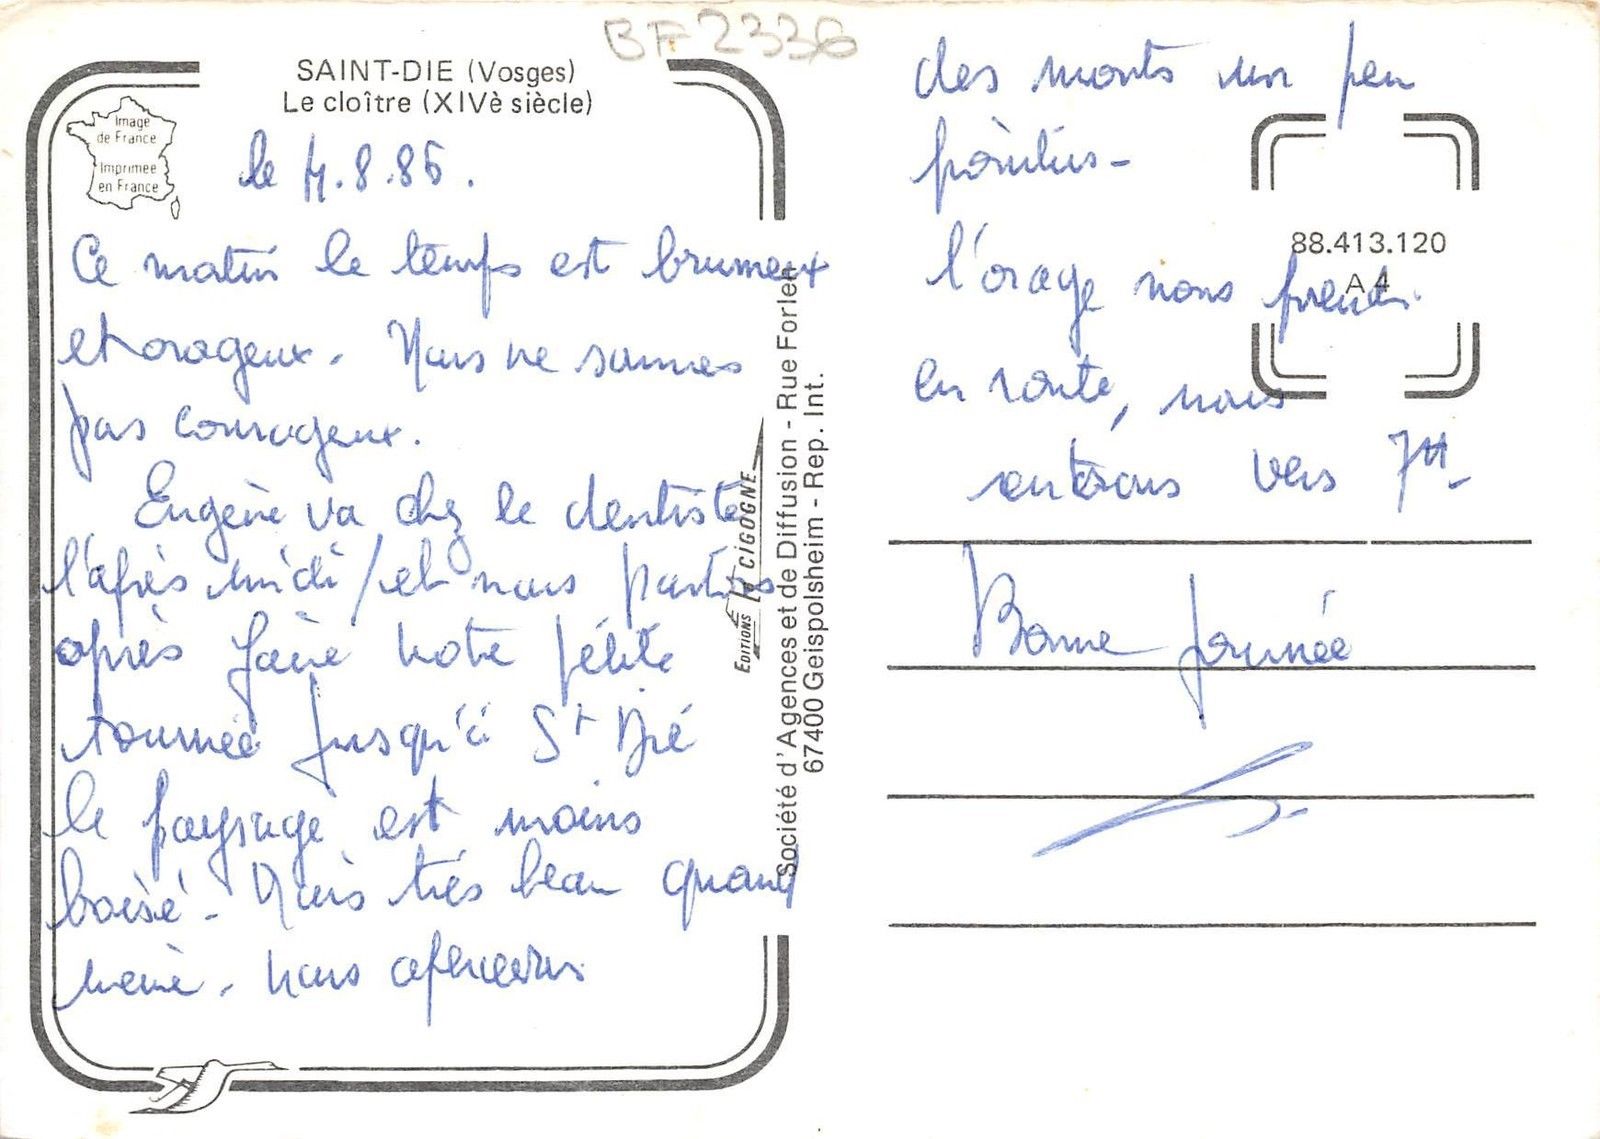 BF2336
SAINT-DIE (Vosges)
Le cloître (XIVè siècle)
Image
de France
Imprimée
en France
le 4.8.86.
Ce matin le temps est brumeux
et orageux. Nous ne sommes
pas courageux.
Eugène va chez le dentiste
l'après midi / et nous partons
après faire notre pétite
tournée jusqu'à St Dié
le paysage est moins
boisé. Mais très beau quand
même. nous apercevons
EDITIONS la CIGOGNE
Société d'Agences et de Diffusion - Rue Forlen
67400 Geispolsheim - Rep. Int.
des monts un peu
pointus -
88.413.120
A 4
l'orage nous prends
en route, nous
rentrons vers 7H -
Bonne journée